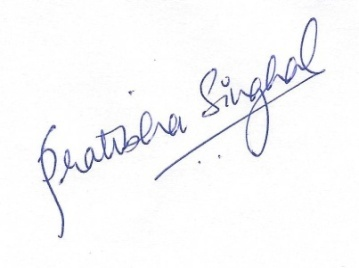 Pratibha Singhal